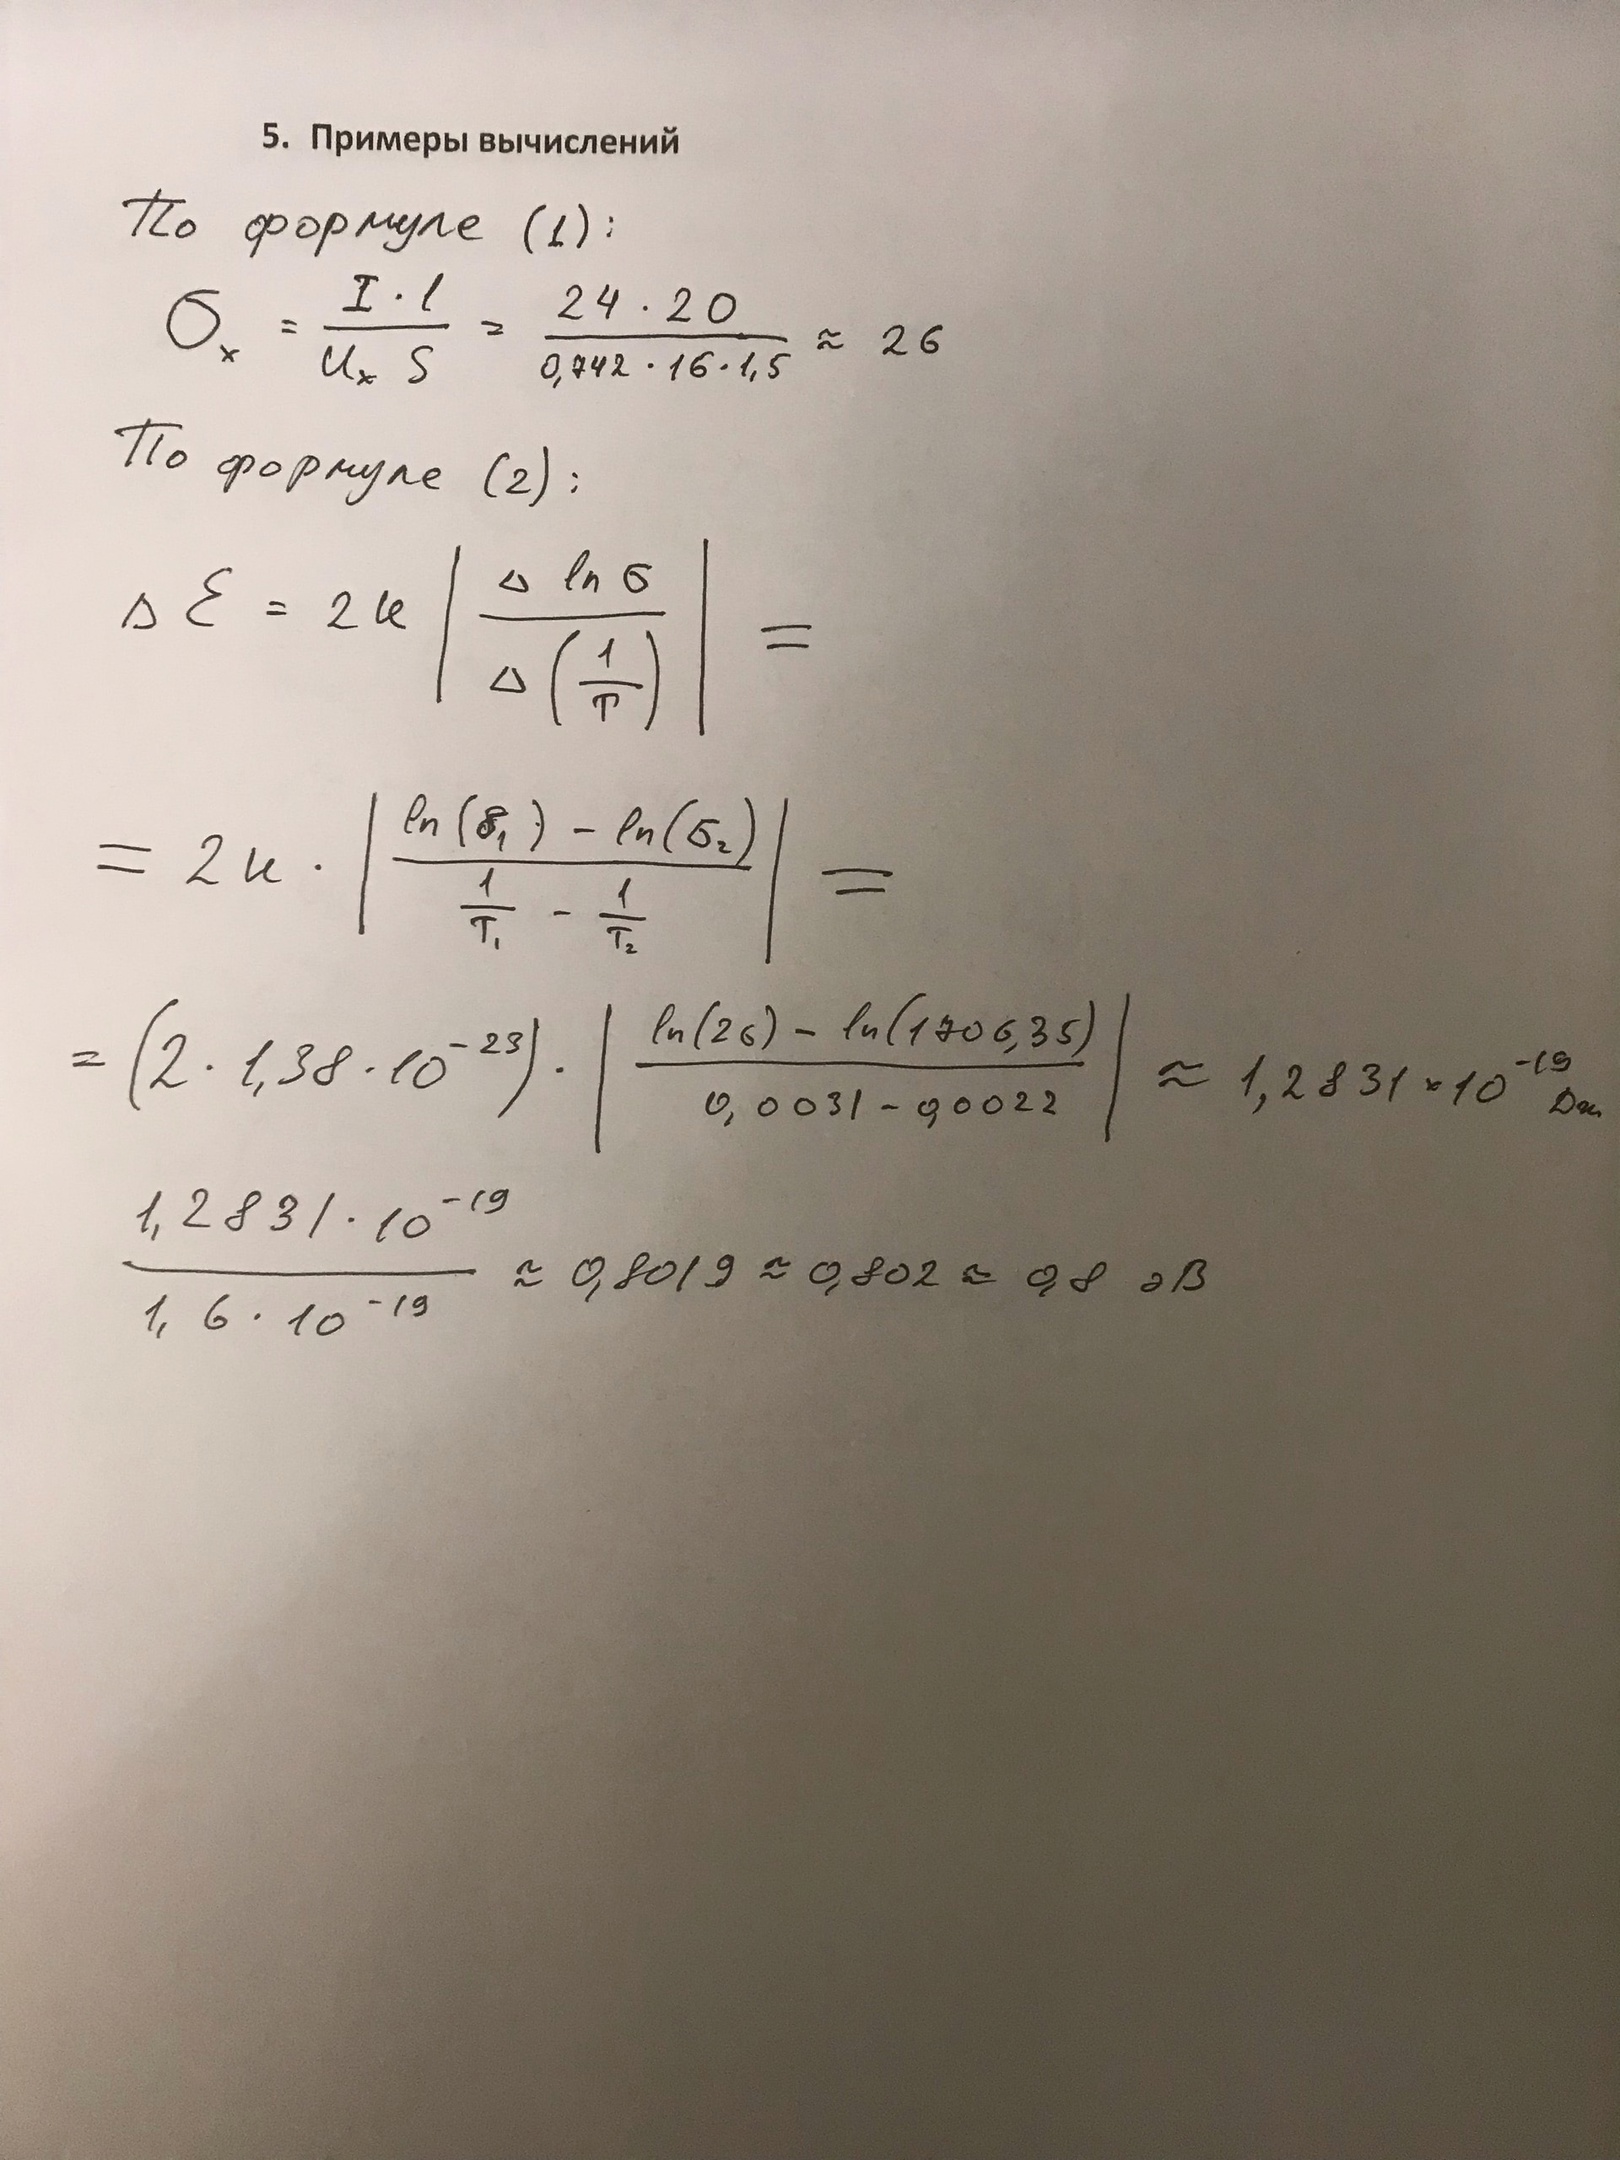 5. Примеры вычислений
По формуле (1):
σₓ = (I · l) / (Uₓ S) = (24 · 20) / (0,742 · 16 · 1,5) ≈ 26
По формуле (2):
Δ Ɛ = 2k | Δ ln σ / Δ (1/T) | =
= 2k · | (ln(σ₁) – ln(σ₂)) / (1/T₁ – 1/T₂) | =
= (2 · 1,38 · 10⁻²³) · | (ln(26) – ln(1706,35)) / (0,0031 – 0,0022) | ≈ 1,2831 × 10⁻¹⁹ Дж
(1,2831 · 10⁻¹⁹) / (1,6 · 10⁻¹⁹) ≈ 0,8019 ≈ 0,802 ≈ 0,8 эВ